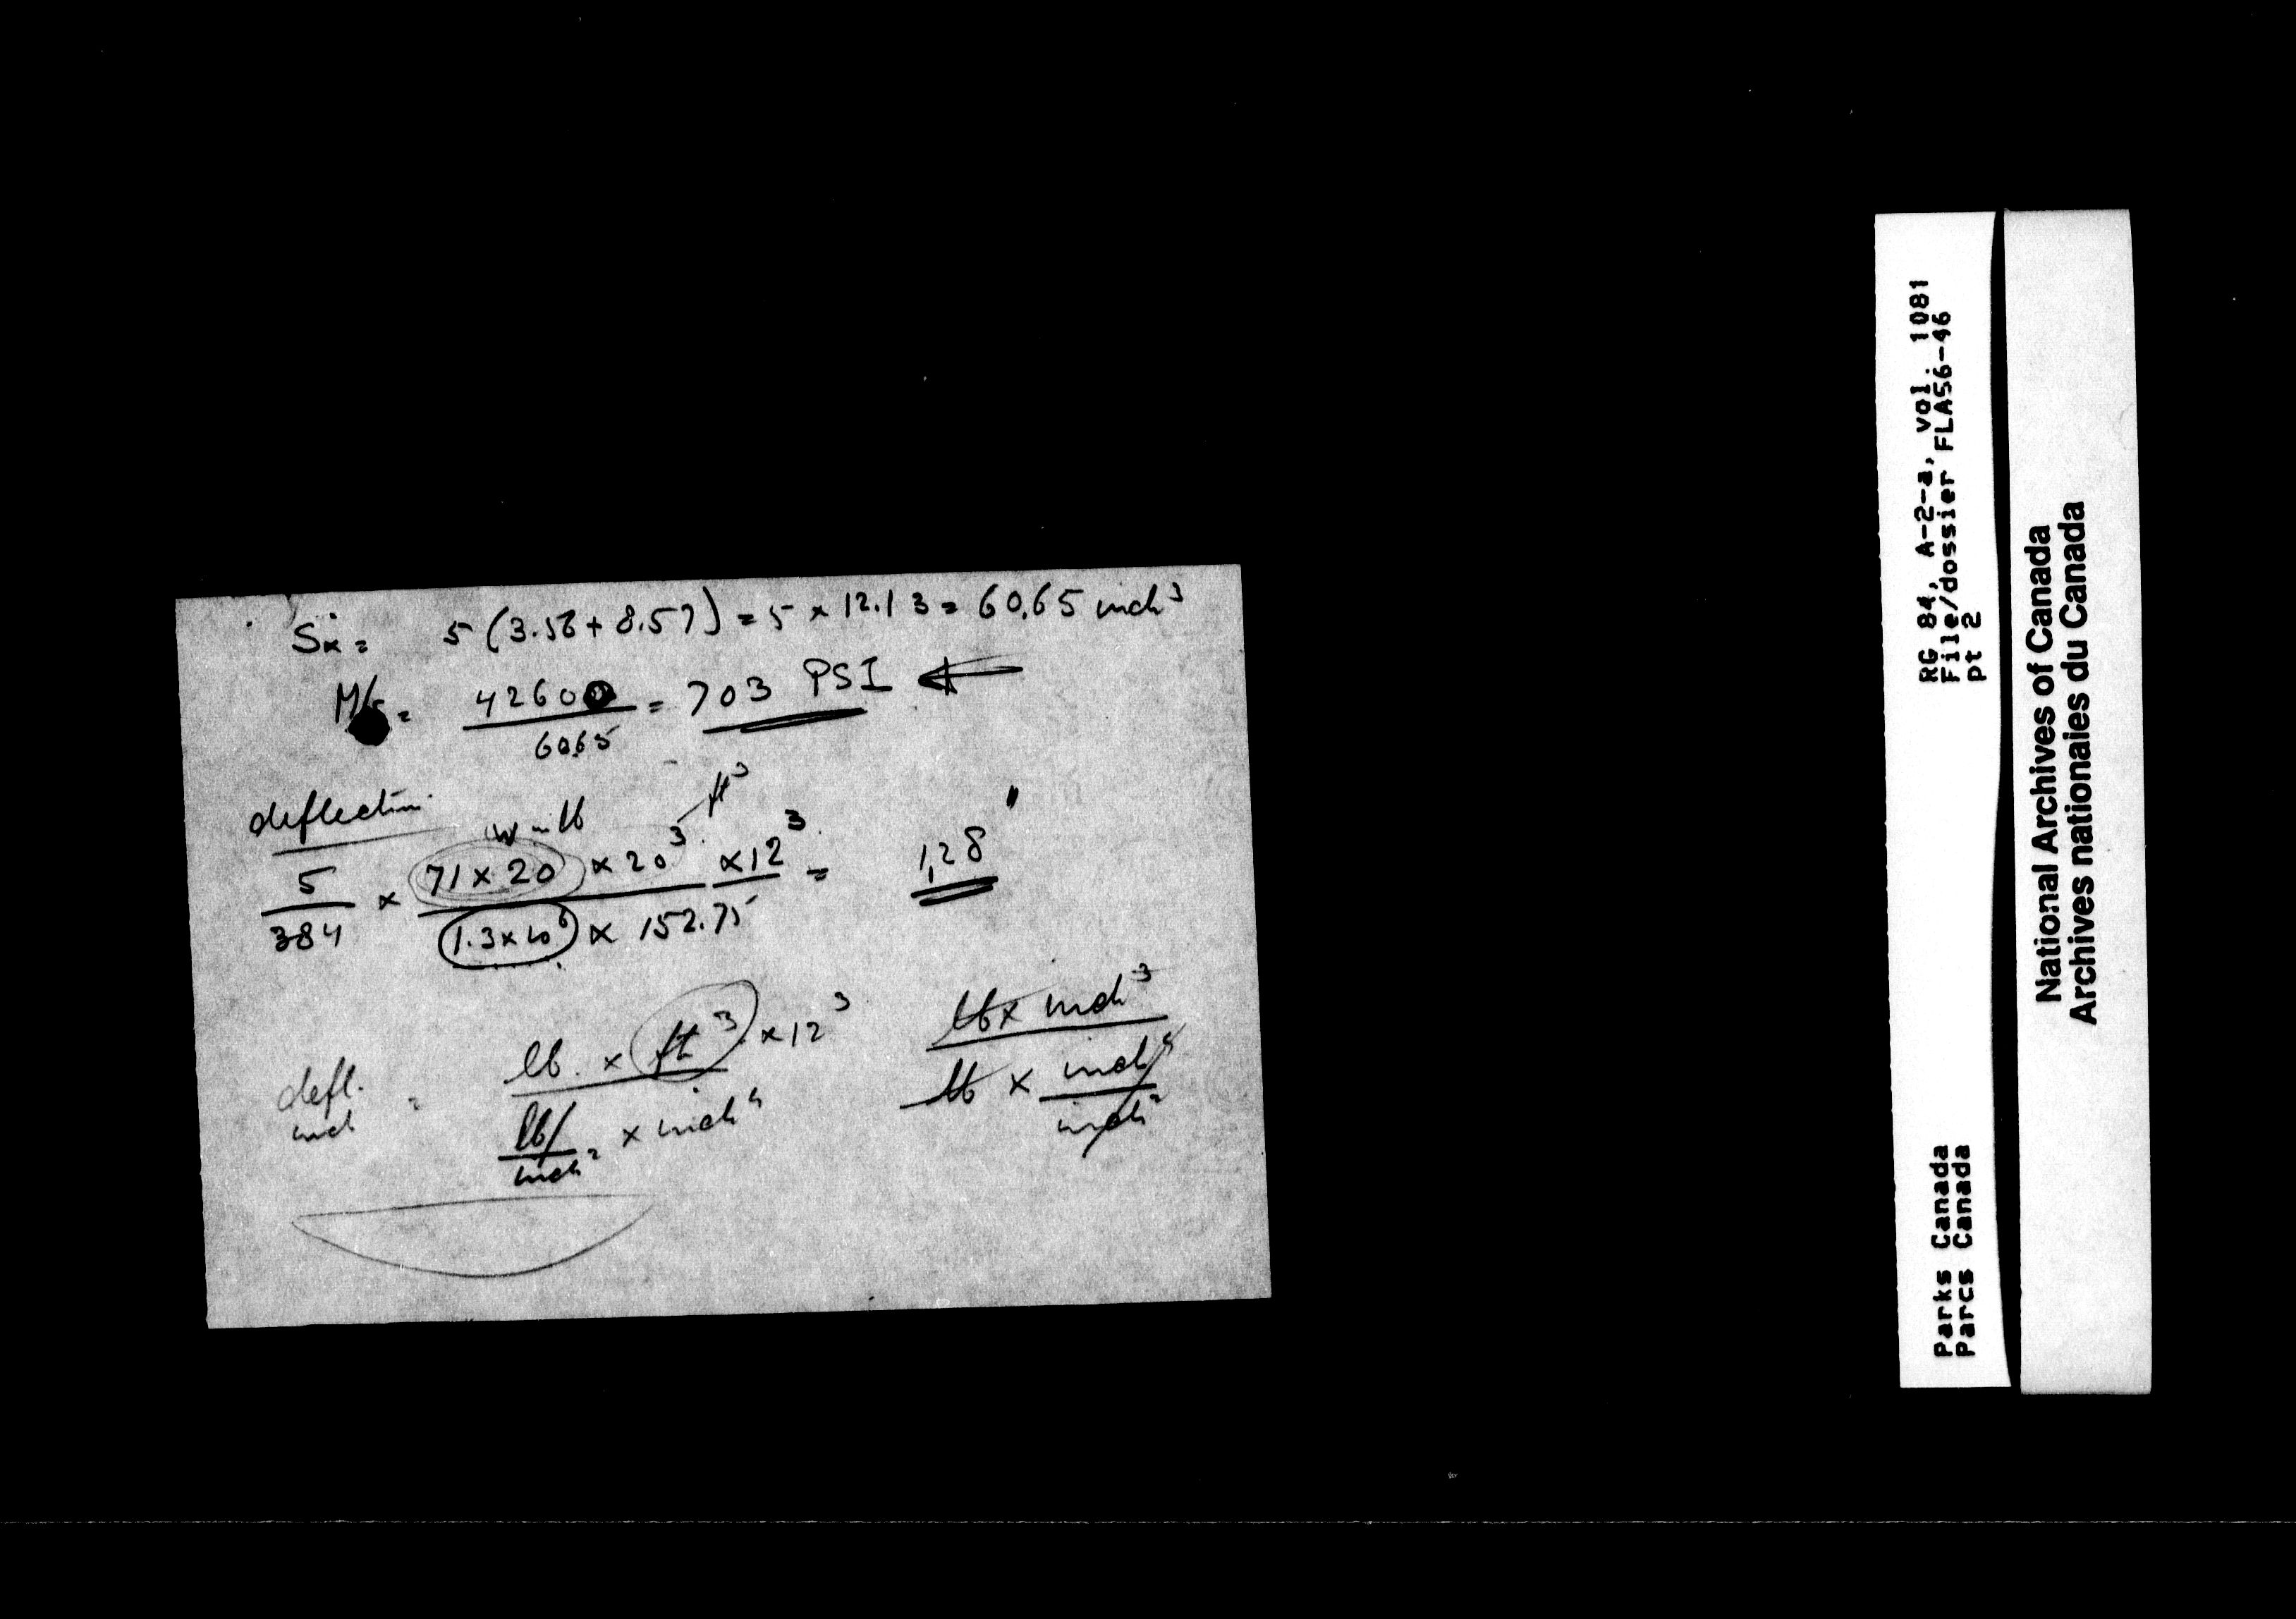 Sx = 5 (3.56 + 8.57) = 5 x 12.13 = 60.65 inch³
M/S = 42600 / 60.65 = 703 PSI ←
deflection
W in lb
ft³
5/384 x (71 x 20) x 20³ x 12³ / (1.3 x 10⁶) x 152.75 = 1,28"
defl. inch = lb. x ft³ x 12³ / lb/inch² x inch⁴
lb x inch³ / lb x inch⁴/inch²
RG 84, A-2-a, vol. 1081
File/dossier FLA56-46
pt 2
Parks Canada
Parcs Canada
National Archives of Canada
Archives nationales du Canada